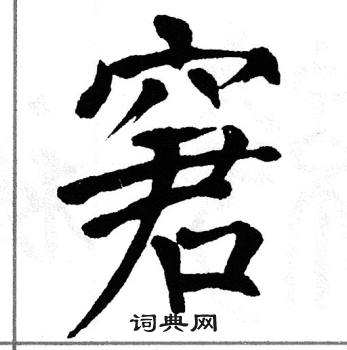 窘
词典网